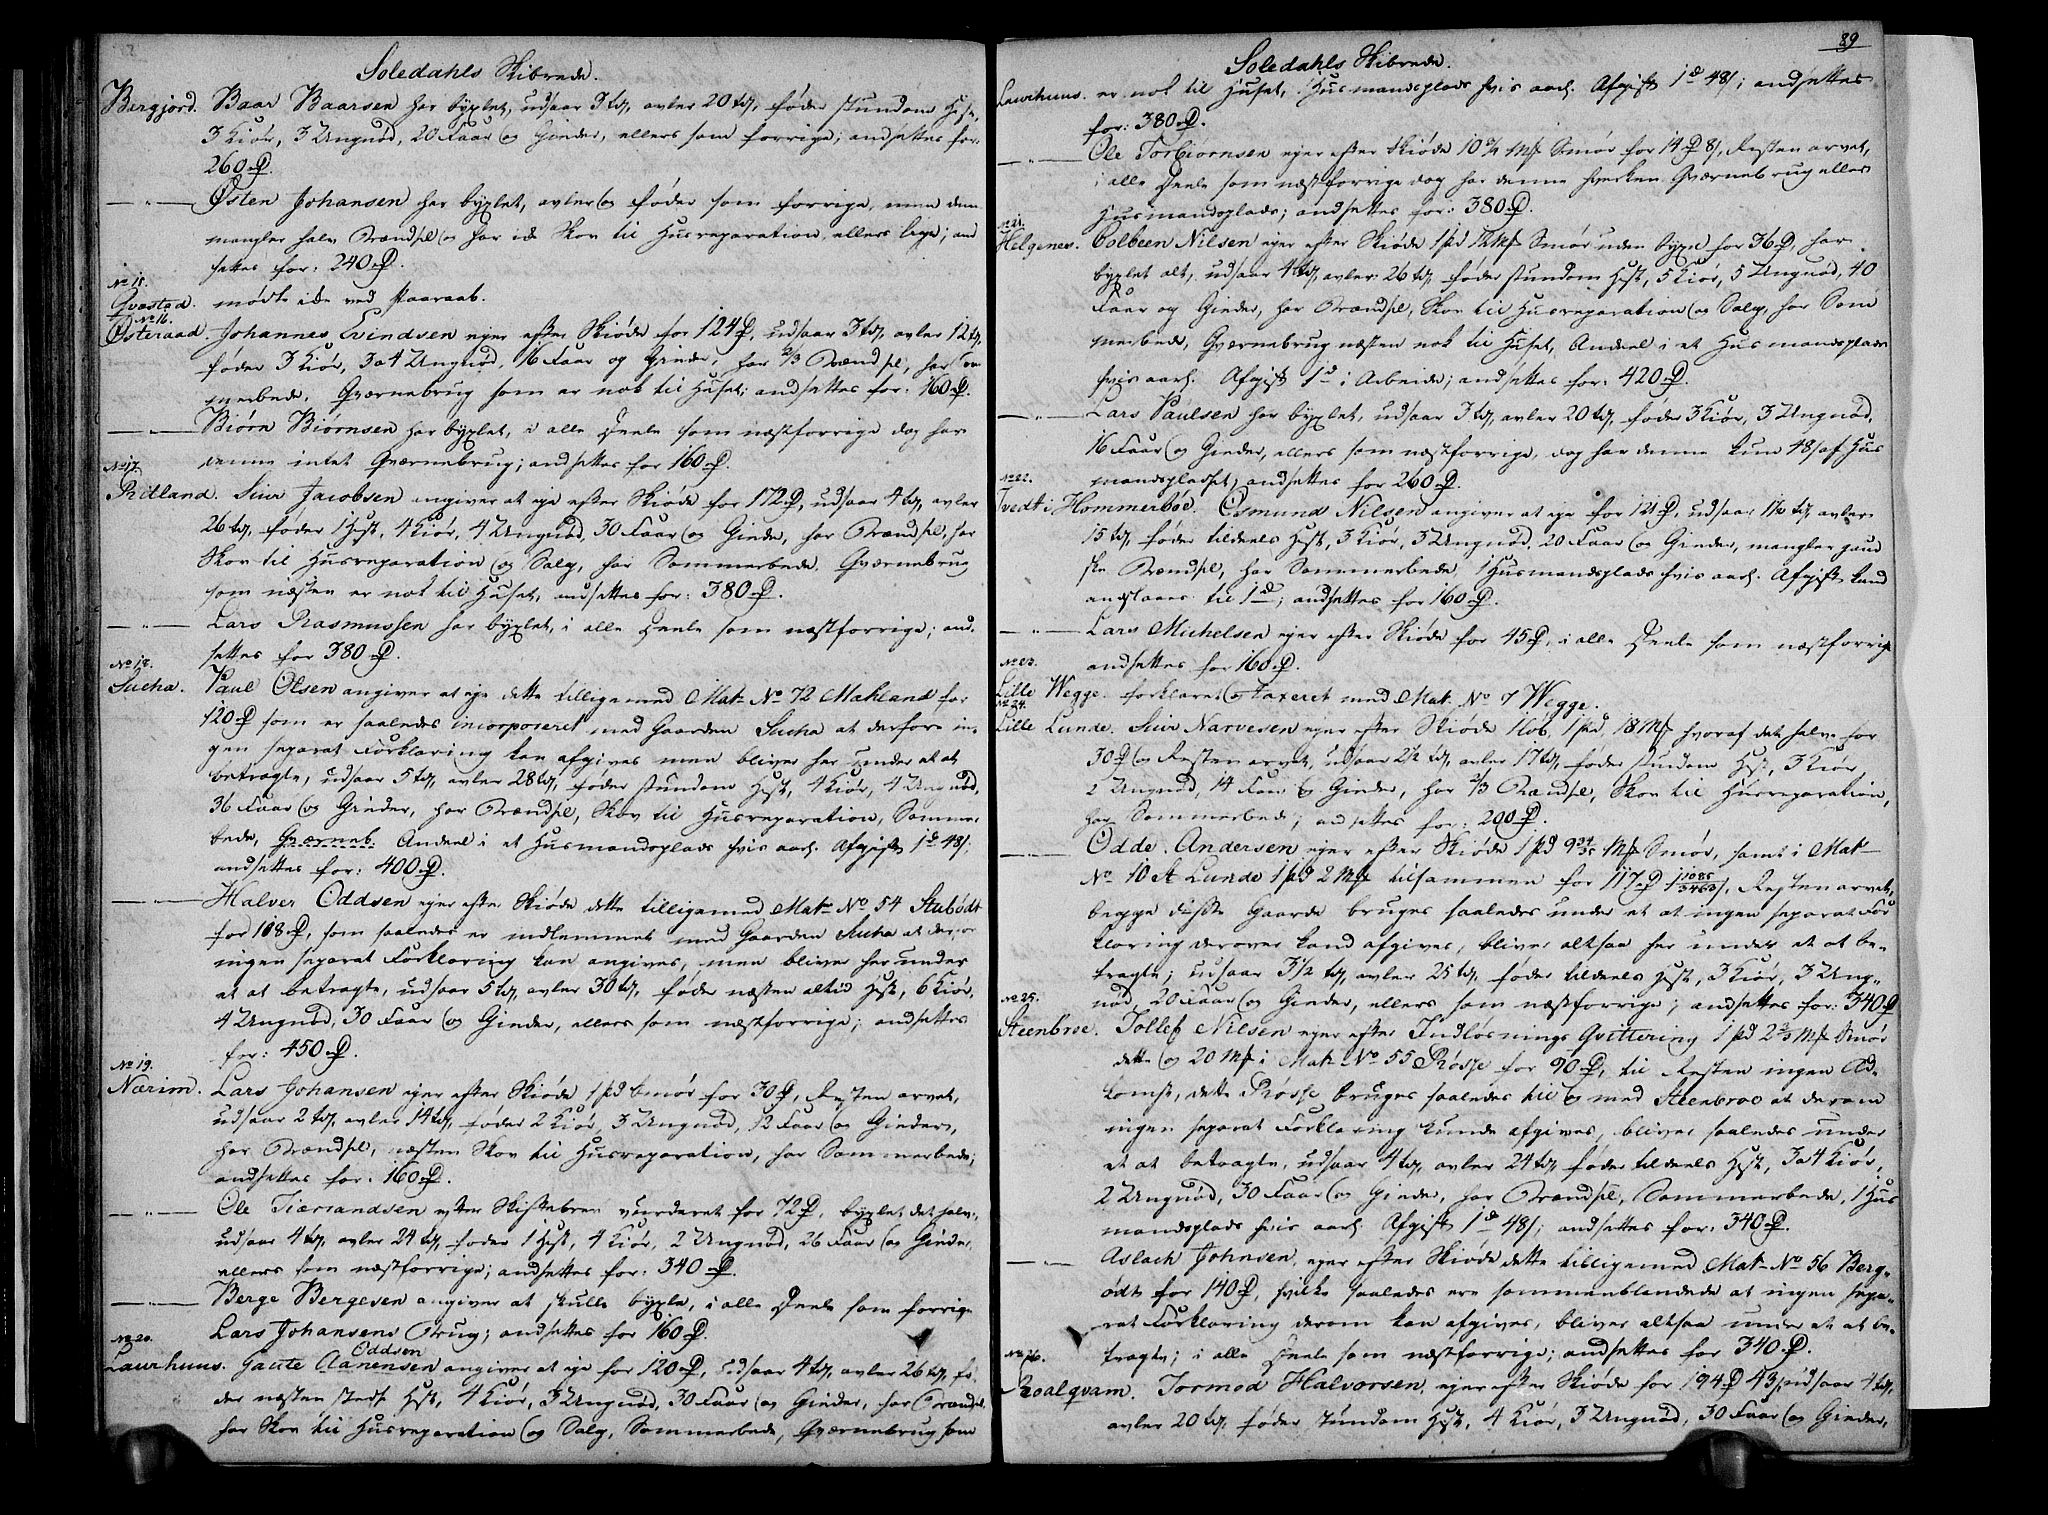 Soledahls Skibrede.
Bergjord. Baar Baarsen har byxlet, udsaar 3 td, avler 20 td, føder stundom Hest,
3 Kiør, 3 Ungnød, 20 Faar og Gieder, ellers som forrige; andsettes for:
260 D.
—„— Østen Johansen har byxlet, avler og føder som forrige, men denne
mangler halv Brændsel og har ick Skov til Husreparation, ellers lige; and
settes for: 240 D.
No 15.
Qvestad. mødte icke ved Paaraab.
No 16.
Østeraad. Johannes Evindsen ejer efter Skiøde for 124 D, udsaar 3 td, avler 12 td,
føder 3 Kiør, 3 a 4 Ungnød, 16 Faar og Gieder, har 2/3 Brændsel, har Som
merbede, Qværnebrug som er nok til Huset; andsettes for: 160 D.
—„— Biørn Biørnsen har byxlet, i alle Deele som næstforrige dog har
denne intet Qværnebrug; andsettes for 160 D.
No 17.
Ritland. Siur Jacobsen angiver at eje efter Skiøde for 172 D, udsaar 4 td, avler
26 td, føder 1 Hest, 4 Kiør, 4 Ungnød, 30 Faar og Gieder, har Brændsel, har
Skov til Husreparation og Salg, har Sommerbede. Qværnebrug
som næsten er nok til Huset, andsettes for: 380 D.
—„— Lars Rasmussen har byxlet, i alle Deele som næstforrige; and-
settes for 380 D.
No 18.
Sucha. Paul Olsen angiver at eje dette tilligemed Mat- No 72 Mahland for
120 D som er saaledes incorporeret med Gaarden Sucha at derfore in-
gen separat Forklaring kan afgives men bliver her under et at
betragte, udsaar 5 td, avler 28 td, føder stundom Hest, 4 Kiør, 4 Ungnød,
36 Faar og Gieder, har Brændsel, Skov til Husreparation, Sommer-
bede, Qværneb. Andeel i et Husmandsplads hvis aarl. Afgift 1 d 48 s;
andsettes for: 400 D.
—„— Halver Oddsen ejer efter Skiøde dette tilligemed Mat- No 54 Stubødt
for 108 D, som saaledes er indlemmet med Gaarden Sucha at der
ingen separat Forklaring kan angives, men bliver her under
et at betragte, udsaar 5 td, avler 30 td, føder næsten altid Hest, 6 Kiør,
4 Ungnød, 30 Faar og Gieder, ellers som næstforrige; andsettes
for: 450 D.
No 19.
Nærim. Lars Johansen ejer efter Skiøde 1 pd Smør for 30 D, Resten arvet,
udsaar 2 td, avler 14 td, føder 2 Kiør, 3 Ungnød, 12 Faar og Gieder,
har Brændsel, næsten Skov til Husreparation, har Sommerbede;
andsettes for: 160 D.
—„— Ole Tiærandsen efter Skiftebrev vurderet for 72 D, byxlet det halve,
udsaar 4 td, avler 24 td, føder 1 Hest, 4 Kiør, 2 Ungnød, 26 Faar og Gieder,
ellers som næstforrige; andsettes for: 340 D.
—„— Berge Bergesen angiver at skulle byxle, i alle Deele som forrige
Lars Johansens Brug; andsettes for 160 D.
No 20. Oddsen
Laurhuus. Gaute Aanensen angiver at eje for 120 D, udsaar 4 td, avler 26 td, fø-
der næsten stedse Hest, 4 Kiør, 3 Ungnød, 30 Faar og Gieder, har Brændsel,
har Skov til Husreparation og Salg, Sommerbede, Qværnebrug som
89
Soledahls Skibrede.
Laurhuus. er nok til Huset, Husmandsplads hvis aarl. Afgift 1 d 48 s; andsettes
for: 380 D.
—„— Ole Torbiørnsen ejer efter Skiøde 10 Mk Smør for 14 D 8 s, Resten arvet,
i alle Deele som næstforrige dog har denne hverken Qværnebrug eller
Husmandsplads; andsettes for: 380 D.
No 21.
Helgenes. Colbeen Nilsen ejer efter Skiøde 1 pd 12 Mk Smør uden byxel for 36 D, har
byxlet alt, udsaar 4 td, avler 26 td, føder stundom Hest, 5 Kiør, 5 Ungnød, 40
Faar og Gieder, har Brændsel, Skov til Husreparation og Salg, har Som
merbede, Qværnebrug næsten nok til Huset, Andeel i et Husmandsplads
hvis aarl. Afgift 1 d i Arbeide; andsettes for: 420 D.
—„— Lars Paulsen har byxlet, udsaar 3 td, avler 20 td, føder 3 Kiør, 3 Ungnød,
16 Faar og Gieder, ellers som næstforrige, dog har denne kun 48 s af Hus
mandspladset, andsettes for 260 D.
No 22.
Tvedt i Hommerbøe. Osmund Nilsen angiver at eje for 121 D, udsaar 1 1/2 td, avler
15 td, føder tildeels Hest, 3 Kiør, 3 Ungnød, 20 Faar og Gieder, mangler gand
ske Brændsel, har Sommerbede 1 Husmandsplads hvis aarl. Afgift kand
anslaaes til 1 d; andsettes for 160 D.
—„— Lars Michelsen ejer efter Skiøde for 45 D, i alle Deele som næstforrige
andsettes for 160 D.
No 23.
Lille Wegge. forklaret og Taxeret med Mat. No 7 Wegge.
No 24.
Lille Lunde. Siur Narvesen ejer efter Skiøde 1 Lob, 1 pd, 18 Mk hvoraf det halve for
30 D og Resten arvet, udsaar 2 1/2 td, avler 17 td, føder stundom Hest, 3 Kiør,
2 Ungnød, 14 Faar og Gieder, har 2/3 Brændsel, Skov til Husreparation,
har Sommerbede; andsettes for: 200 D.
—„— Odde Andersen ejer efter Skiøde 1 pd 9 Mk Smør, samt i Mat-
No 10 A Lunde 1 pd 2 Mk tilsammen for 117 D, Resten arvet,
begge disse Gaarde bruges saaledes under et at ingen separat For
klaring derover kand afgives, bliver altsaa her under et at be-
tragte; udsaar 3 1/2 td, avler 25 td, føder tildeels Hest, 3 Kiør, 3 Ung-
nød, 20 Faar og Gieder, ellers som næstforrige; andsettes for: 340 D
No 25.
Steenbroe. Tollef Nilsen ejer efter Indløsnings Qvittering 1 pd 2 2/3 Mk Smør
dette og 20 Mk i Mat- No 55 Røsse for 90 D, til Resten ingen Ad-
komst, dette Røsse bruges saaledes til og med Steenbroe at derom
ingen separat Forklaring kunde afgives, bliver saaledes under
et at betragte, udsaar 4 td, avler 24 td, føder tildeels Hest, 3 a 4 Kiør,
2 Ungnød, 30 Faar og Gieder, har Brændsel, Sommerbede, 1 Hus
mandsplads hvis aarl. Afgift 1 d 48 s; andsettes for: 340 D.
—„— Aslach Johnsen, ejer efter Skiøde dette tilligemed Mat- No 56 Berg-
ødt for 140 D, hvilke saaledes ere sommenblandede at ingen sepa-
rat Forklaring derom kan afgives, bliver altsaa under et at be-
tragte; i alle Deele som næstforrige; andsettes for 340 D.
No 26.
Roalqvam. Tormod Halvorsen, ejer efter Skiøde for 194 D 43 s, udsaar 4 td,
avler 20 td, føder stundom Hest, 4 Kiør, 3 Ungnød, 30 Faar og Gieder,